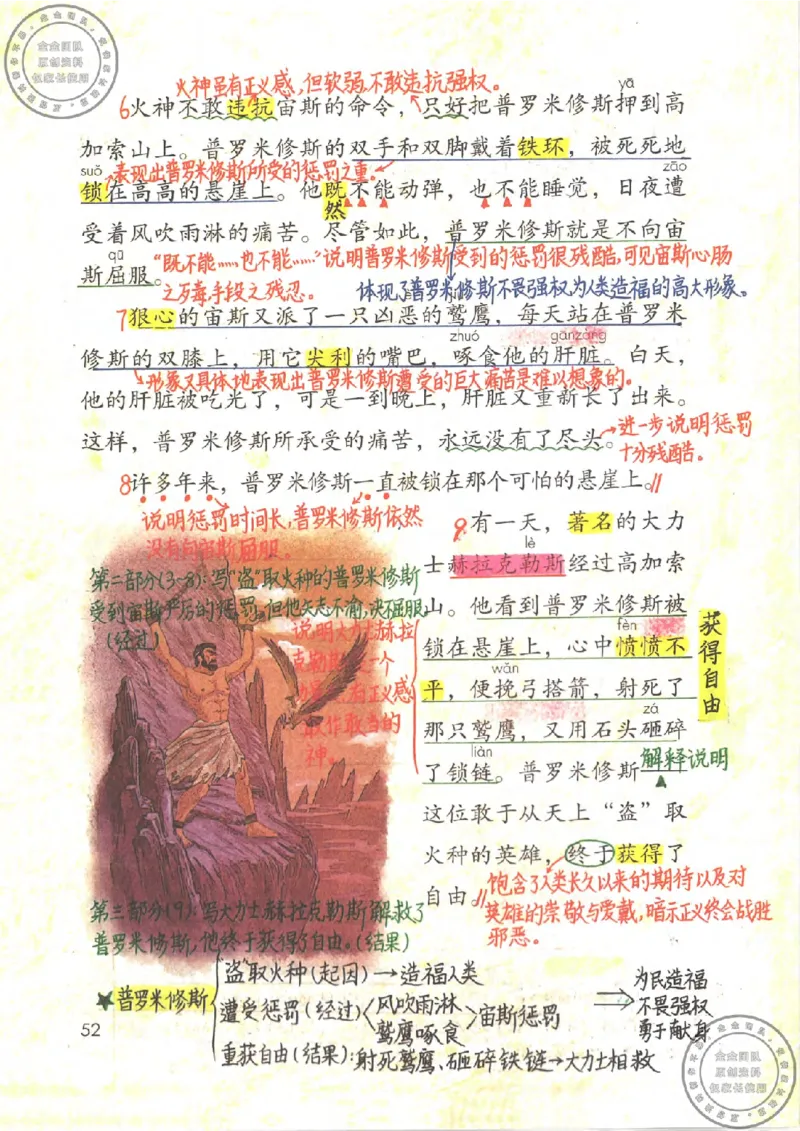 火神虽有正义感，但软弱，不敢违抗强权。
yā
6火神不敢违抗宙斯的命令，只好把普罗米修斯押到高
加索山上。普罗米修斯的双手和双脚戴着铁环，被死死地
suǒ
表现出普罗米修斯所受的惩罚之重。
zāo
锁在高高的悬崖上。他既不能动弹，也不能睡觉，日夜遭
然
受着风吹雨淋的痛苦。尽管如此，普罗米修斯就是不向宙
qū
斯屈服。
“既不能……也不能……”说明普罗米修斯受到的惩罚很残酷，可见宙斯心肠
之歹毒手段之残忍。
体现了普罗米修斯不畏强权为人类造福的高大形象。
7狠心的宙斯又派了一只凶恶的鹫鹰，每天站在普罗米
zhuó
gānzàng
修斯的双膝上，用它尖利的嘴巴，啄食他的肝脏。白天，
形象又具体地表现出普罗米修斯遭受的巨大痛苦是难以想象的。
他的肝脏被吃光了，可是一到晚上，肝脏又重新长了出来。
这样，普罗米修斯所承受的痛苦，永远没有了尽头。
进一步说明惩罚
十分残酷。
8许多年来，普罗米修斯一直被锁在那个可怕的悬崖上。
说明惩罚时间长，普罗米修斯依然
没有向宙斯屈服。
9有一天，著名的大力
lè
士赫拉克勒斯经过高加索
山。他看到普罗米修斯被
fèn
锁在悬崖上，心中愤愤不
wǎn
平，便挽弓搭箭，射死了
zá
那只鹫鹰，又用石头砸碎
liàn
了锁链。普罗米修斯
解释说明
这位敢于从天上“盗”取
火种的英雄，终于获得了
自由。
获得自由
第二部分(3~8)：写“盗”取火种的普罗米修斯
受到宙斯严厉的惩罚，但他矢志不渝，决不屈服
(经过)
说明大力士赫拉
克勒斯是一个
有正义感
敢作敢当的
神。
饱含了人类长久以来的期待以及对
英雄的崇敬与爱戴，暗示正义终会战胜
邪恶。
第三部分(9)：写大力士赫拉克勒斯解救了
普罗米修斯，他终于获得了自由。(结果)
★普罗米修斯
“盗”取火种(起因)→造福人类
遭受惩罚(经过)
风吹雨淋
鹫鹰啄食
宙斯惩罚
重获自由(结果)：射死鹫鹰、砸碎铁链→大力士相救
为民造福
不畏强权
勇于献身
52